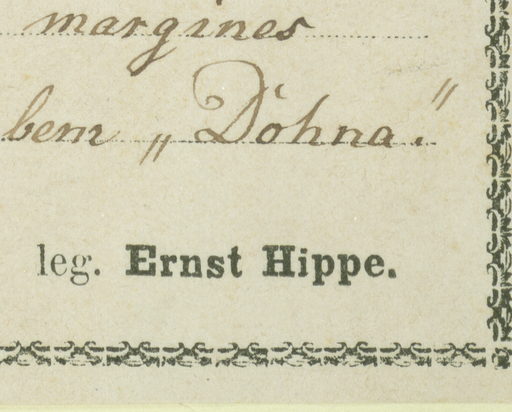 margines
bem „Döhna.“
leg. Ernst Hippe.